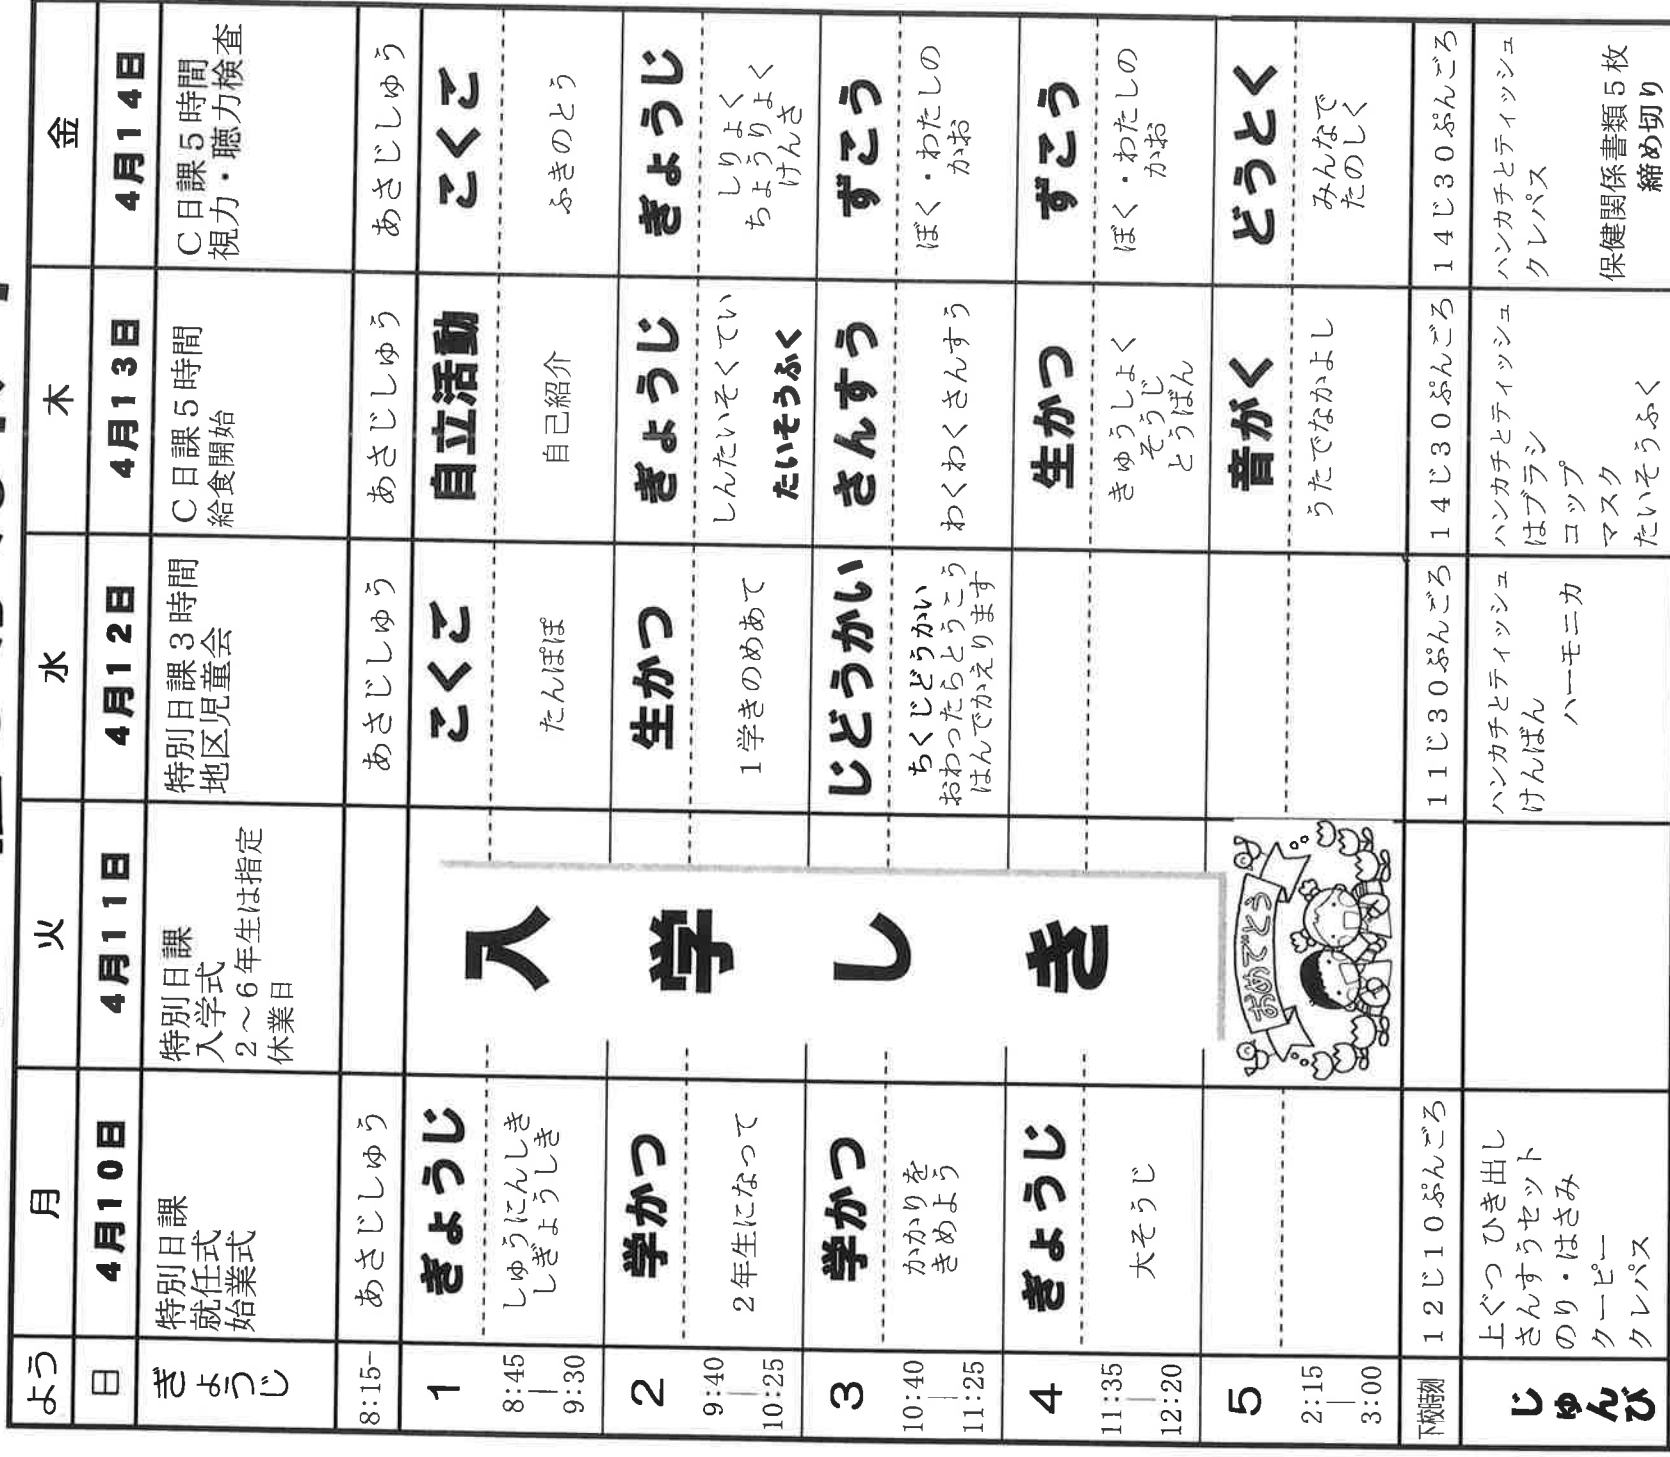 よう
月
火
水
木
金
日
4月10日
4月11日
4月12日
4月13日
4月14日
ぎょうじ
特別日課
就任式
始業式
特別日課
入学式
2～6年生は指定
休業日
特別日課3時間
地区児童会
C日課5時間
給食開始
C日課5時間
視力・聴力検査
8:15-
あさじしゅう
あさじしゅう
あさじしゅう
あさじしゅう
1
8:45
|
9:30
ぎょうじ
しゅうにんしき
しぎょうしき
こくご
たんぽぽ
自立活動
自己紹介
こくご
ふきのとう
2
9:40
|
10:25
学かつ
2年生になって
生かつ
1学きのめあて
ぎょうじ
しんたいそくてい
たいそうふく
ぎょうじ
しりょく
ちょうりょく
けんさ
3
10:40
|
11:25
学かつ
かかりを
きめよう
じどうかい
ちくじどうかい
おわったらとうこう
はんでかえります
さんすう
わくわくさんすう
ずこう
ぼく・わたしの
かお
4
11:35
|
12:20
ぎょうじ
大そうじ
生かつ
きゅうしょく
そうじ
とうばん
ずこう
ぼく・わたしの
かお
入学しき
5
2:15
|
3:00
おめでとう
音がく
うたでなかよし
どうとく
みんなで
たのしく
下校時刻
12じ10ぷんごろ
11じ30ぷんごろ
14じ30ぷんごろ
14じ30ぷんごろ
じゅんび
上ぐつ ひき出し
さんすうセット
のり・はさみ
クーピー
クレパス
ハンカチとティッシュ
けんばん
ハーモニカ
ハンカチとティッシュ
はブラシ
コップ
マスク
たいそうふく
ハンカチとティッシュ
クレパス
保健関係書類5枚
締め切り